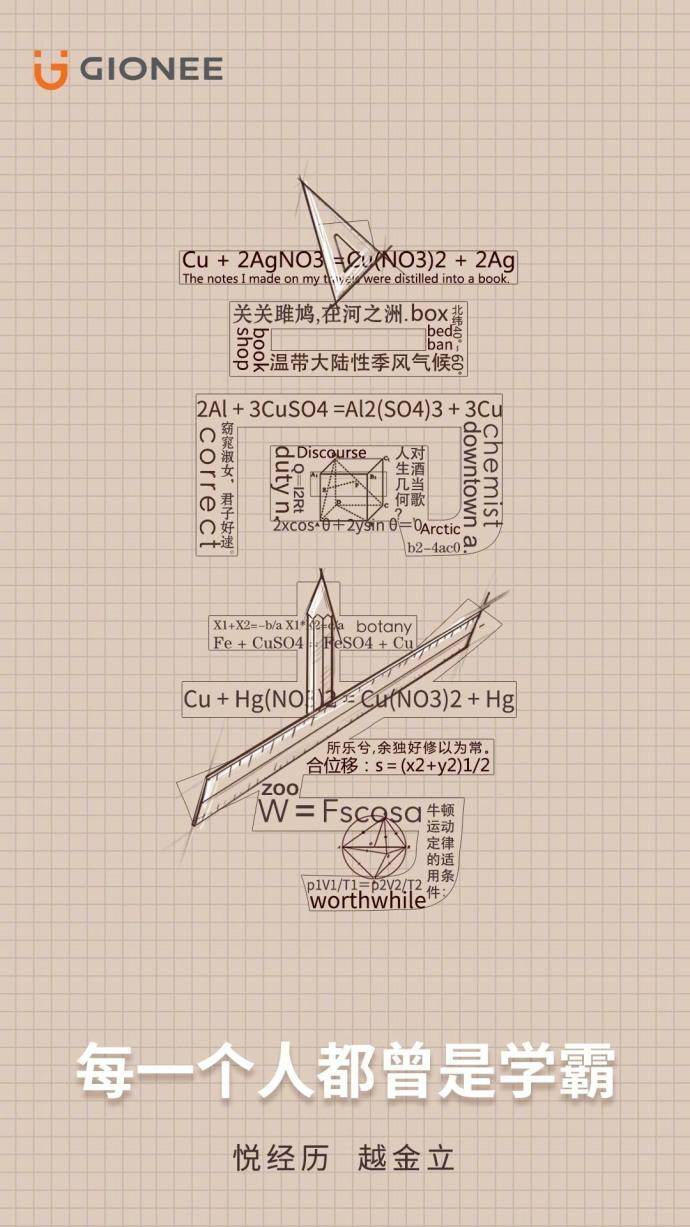 GIONEE
Cu + 2AgNO3 =Cu(NO3)2 + 2Ag
The notes I made on my travels were distilled into a book.
关关雎鸠,在河之洲.box
北纬40°~60°
shop
book
bed
ban
温带大陆性季风气候
2Al + 3CuSO4 =Al2(SO4)3 + 3Cu
correct
窈窕淑女，君子好逑。
duty n.
Q=I2Rt
Discourse
对酒当歌
人生几何?
downtown a.
chemist
2xcos θ+2ysin θ=0
Arctic
b2-4ac0
X1+X2=-b/a X1*X2=c/a
botany
Fe + CuSO4 = FeSO4 + Cu
Cu + Hg(NO3)2 = Cu(NO3)2 + Hg
所乐兮,余独好修以为常。
合位移：s=(x2+y2)1/2
zoo
W=Fscosa
牛顿
运动
定律
的适
用条
件:
p1V1/T1=p2V2/T2
worthwhile
每一个人都曾是学霸
悦经历 越金立